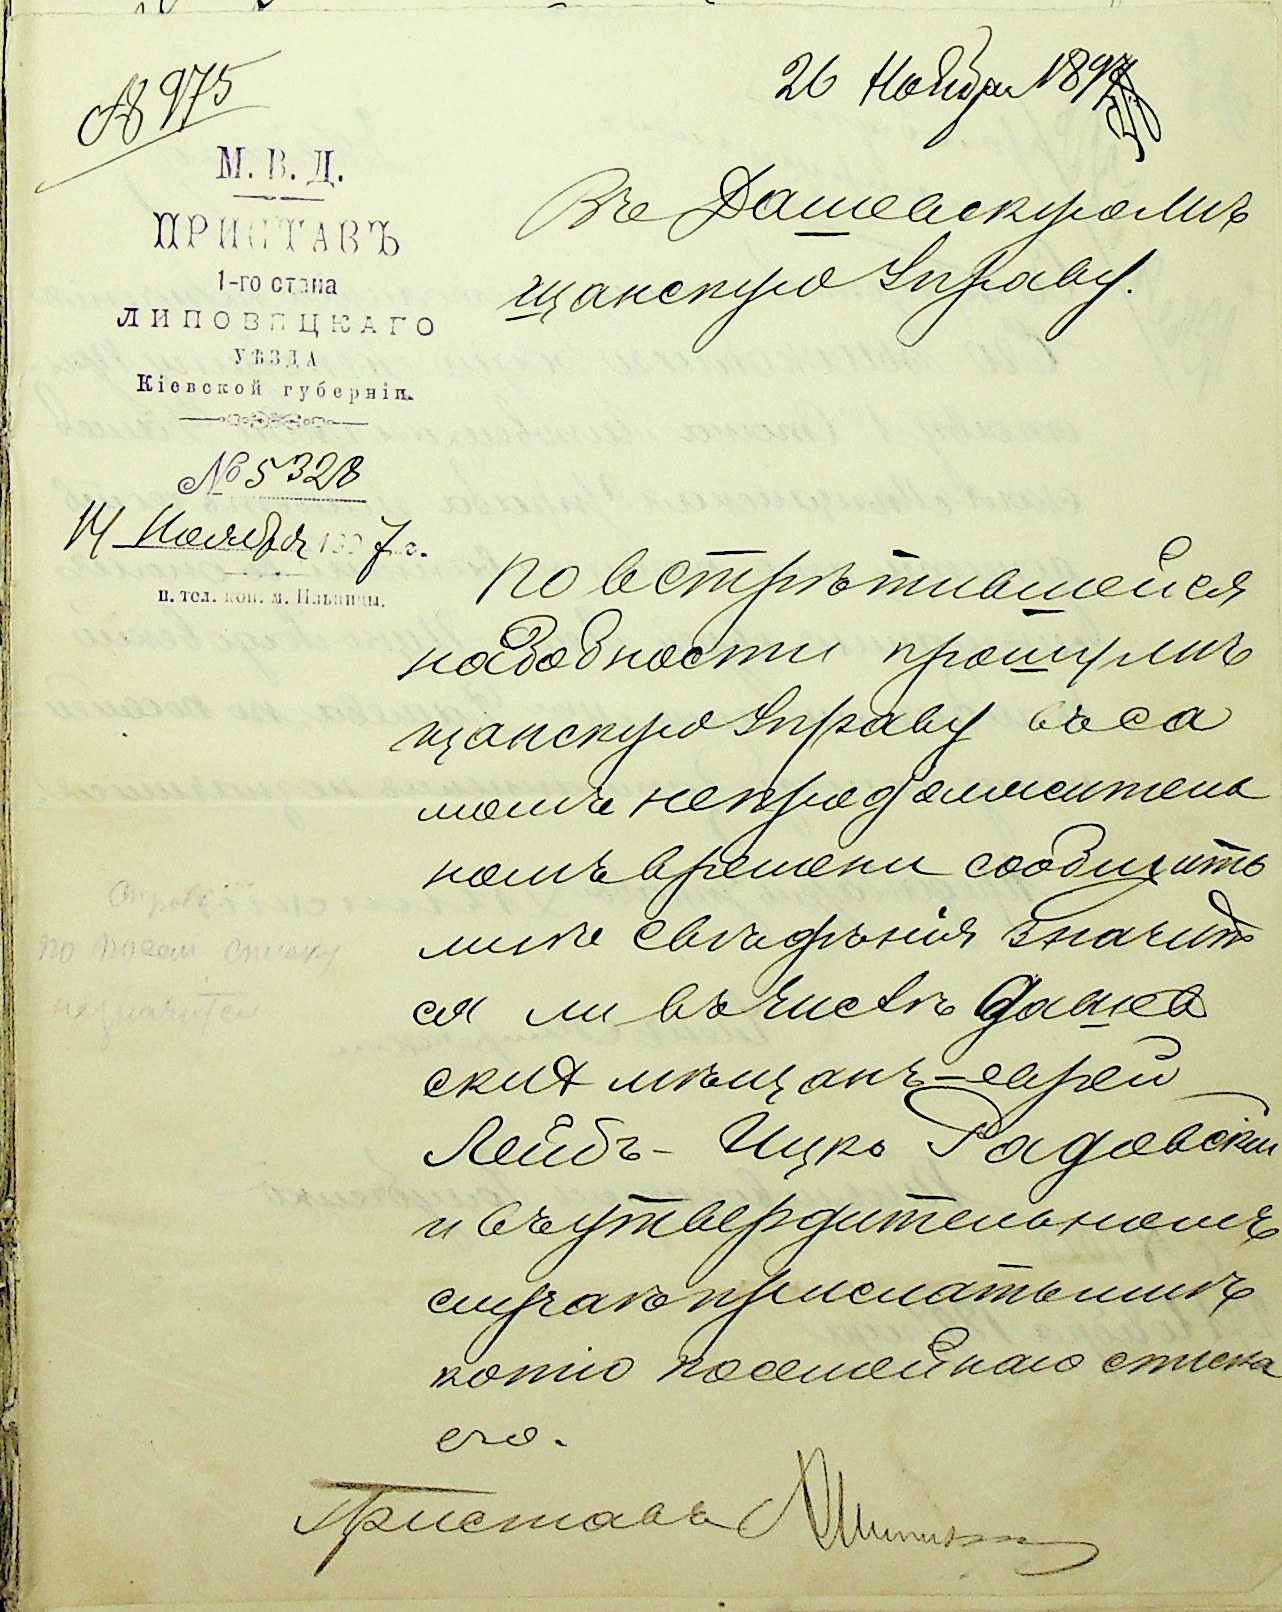 № 975
26 Ноября 1897
М. В. Д.
ПРИСТАВЪ
1-го стана
ЛИПОВЕЦКАГО
УѢЗДА
Кіевской губерніи.
№ 5328
14 Ноября 1897 г.
п. тел. кон. м. Ильинцы.
Въ Дашевскую Мѣ
щанскую Управу.
По встрѣтившейся
надобности прошу Мѣ
щанскую Управу въ са
момъ непродолжитель
номъ времени сообщить
мнѣ свѣдѣнія значит
ся ли въ числѣ Дашев
скихъ мѣщанъ-еврей
Лейбъ-Ицко Радовскій
и въ утвердительномъ
случаѣ прислать мнѣ
копію посемейнаго списка
его.
по посем списку
незначится
Приставъ